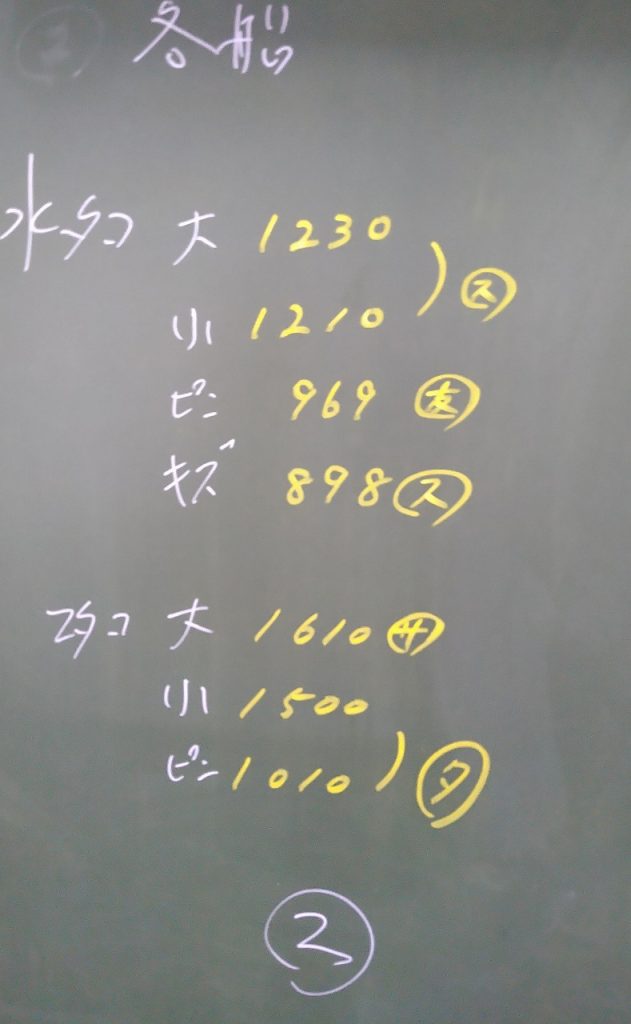 各船
水タコ 大 1230
小 1210 ㋜
ピン 969 友
キズ 898 ㋜
マタコ 大 1610 ㋚
小 1500
ピン 1010 ㋟
2